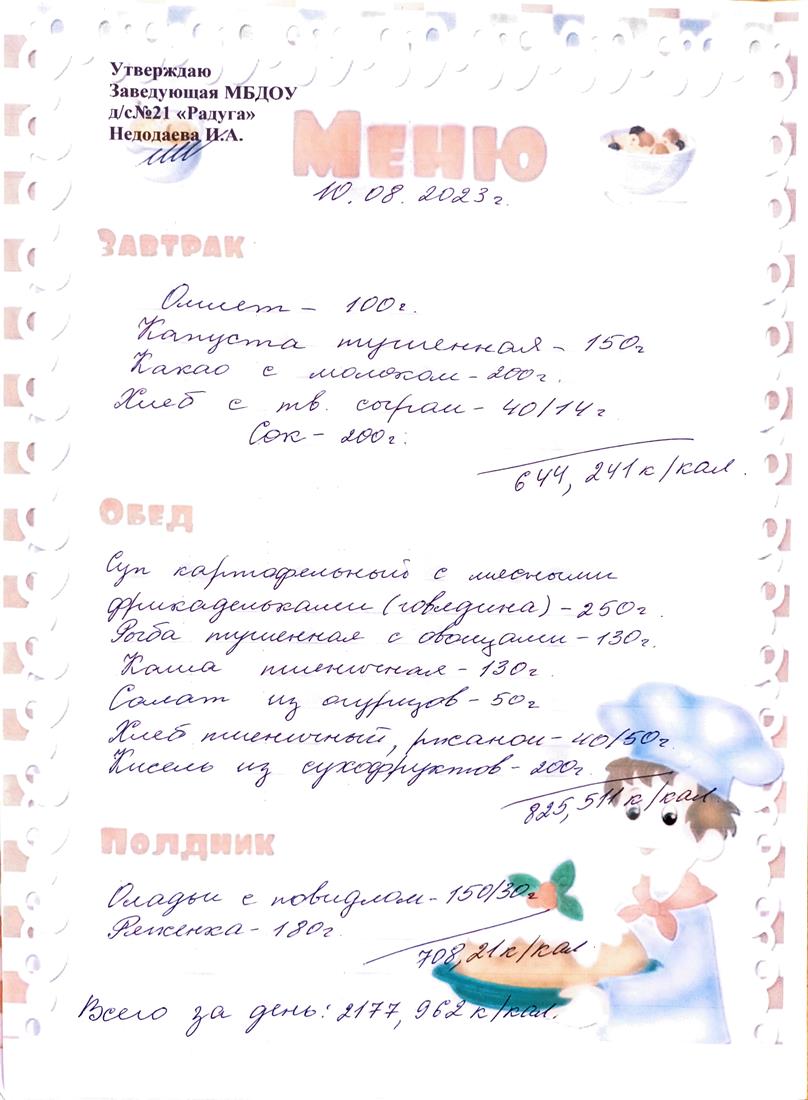 Утверждаю
Заведующая МБДОУ
д/с№21 «Радуга»
Недодаева И.А.
Меню
10.08.2023г.
Завтрак
Омлет - 100г.
Капуста тушенная - 150г
Какао с молоком - 200г.
Хлеб с тв. сыром - 40/14г
Сок - 200г.
644,241к/кал.
Обед
Суп картофельный с мясными
фрикадельками (говядина) - 250г.
Рыба тушенная с овощами - 130г.
Каша пшеничная - 130г.
Салат из огурцов - 50г
Хлеб пшеничный, ржаной - 40/50г.
Кисель из сухофруктов - 200г.
825,511к/кал
Полдник
Оладьи с повидлом - 150/30г
Ряженка - 180г.
708,21к/кал.
Всего за день: 2177,962к/кал.